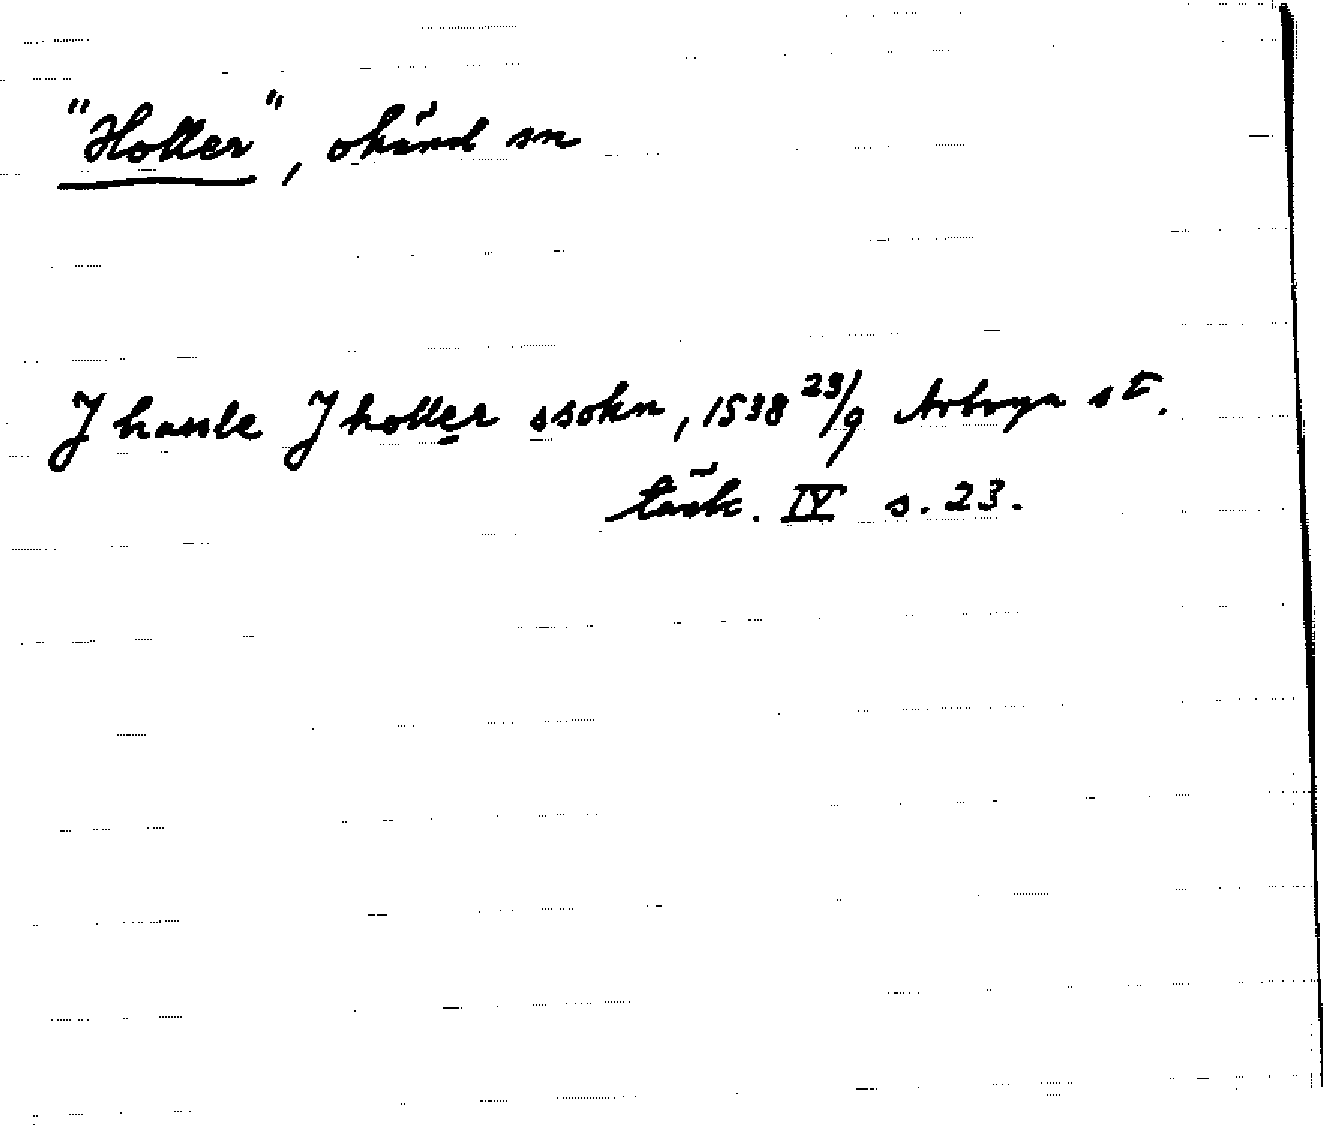 "Holler", okänd sn
J hanle J holler ssohn, 1538 23/9 Arboga st.
tänk. IV s. 23.